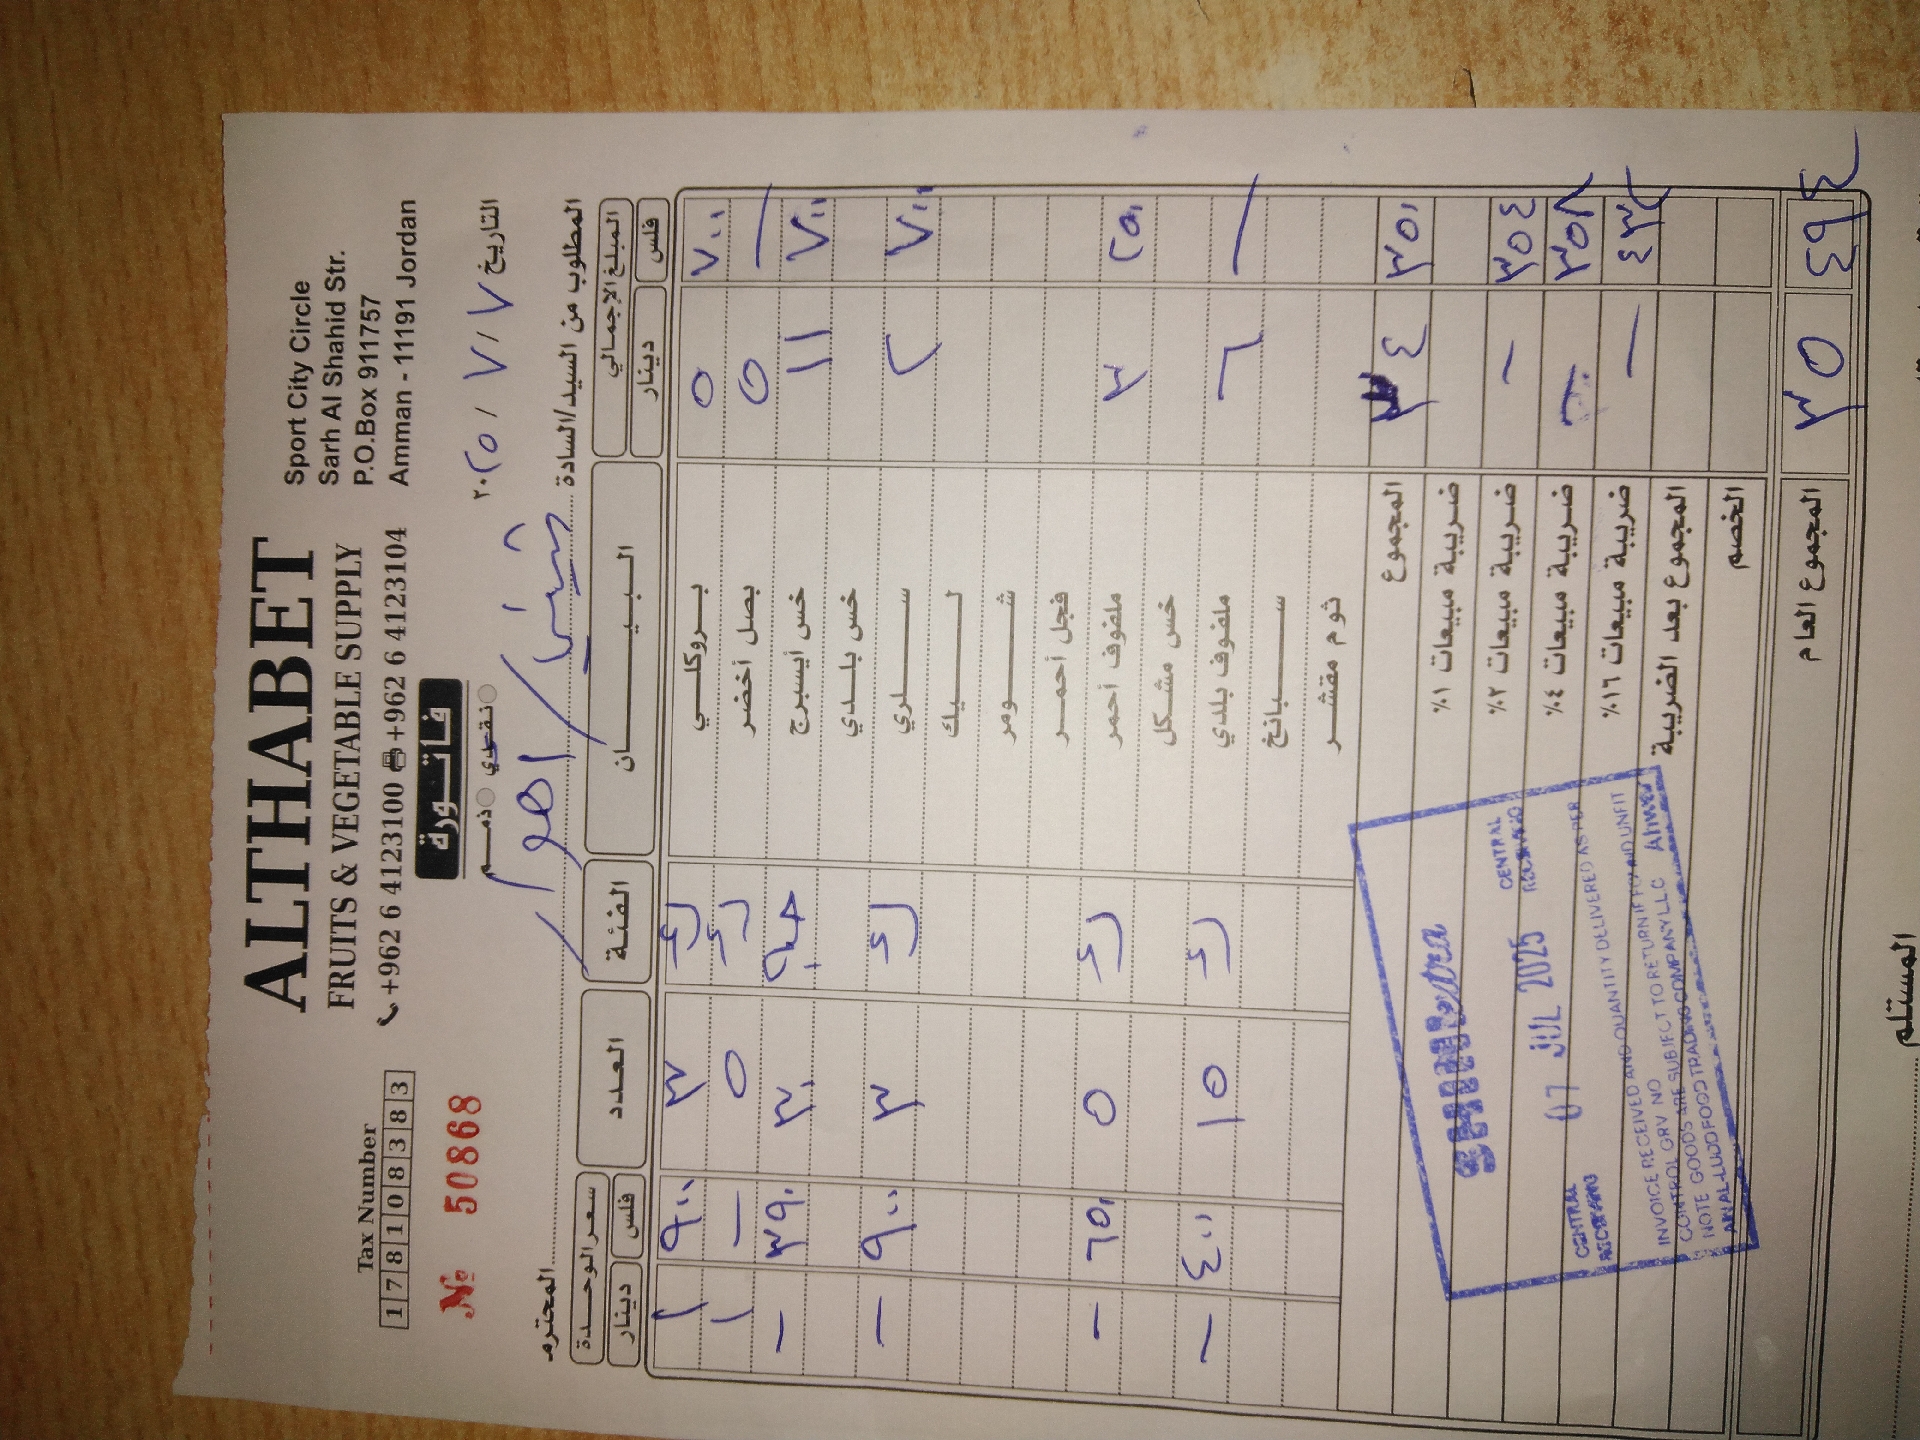 ALTHABET
FRUITS & VEGETABLE SUPPLY
+962 6 4123100 +962 6 4123104
Sport City Circle
Sarh Al Shahid Str.
P.O.Box 911757
Amman - 11191 Jordan
Tax Number
178108383
№ 50868
فاتورة
ذمم نقدي
التاريخ ٧ / ٧ / ٢٠٢٥
المطلوب من السيد/السادة
المحترم
المبلغ الإجمالي البيان الفئة العدد سعر الوحدة
فلس دينار فلس دينار
٧٠٠ ٥ بروكلي ٣ ٩٠٠ ١
— ٥ بصل أخضر ٥ — ١
٧٠٠ ١١ خس أيسبرج ٣٠ ٣٩٠ —
خس بلدي
٧٠٠ ٢ سلري ٣ ٩٠٠ —
ليك
شومر
فجل أحمر
٢٥٠ ٣ ملفوف أحمر ٥ ٦٥٠ —
خس مشكل
— ٦ ملفوف بلدي ١٥ ٤٠٠ —
سبانخ
ثوم مقشر
المجموع ٣٤ ٣٥٠
ضريبة مبيعات ١%
ضريبة مبيعات ٢% — ٣٥٤
ضريبة مبيعات ٤% — ٣٥٨
ضريبة مبيعات ١٦% — ٤٣٢
المجموع بعد الضريبة
الخصم
المجموع العام ٣٥ ٤٩٤
CENTRAL
07 JUL 2025
CENTRAL
INVOICE RECEIVED AND QUANTITY DELIVERED AS PER
CONTROL GRV NO
NOTE GOODS ARE SUBJECT TO RETURN IF FOUND UNFIT
FOOD TRADING COMPANY LLC
المستلم